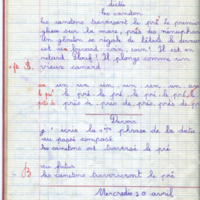 dictée
les canetons
les canetons traversent le pré le premier
glisse sur la mare, près des nénuphars
un glouton se régale de têtards le dernier
est au bord coin, coin! Il est en
retard. Plouf! Il plonge comme un
vieux canard
un, un, un, un, un, un
le pré le pré le pré le pré
près de près de près
Devoir
j'écris la 1ère phrase de la dictée
au passé composé
Les canetons ont traversé le pré
au futur
Les canetons traverseront le pré
Mercredi 20 avril